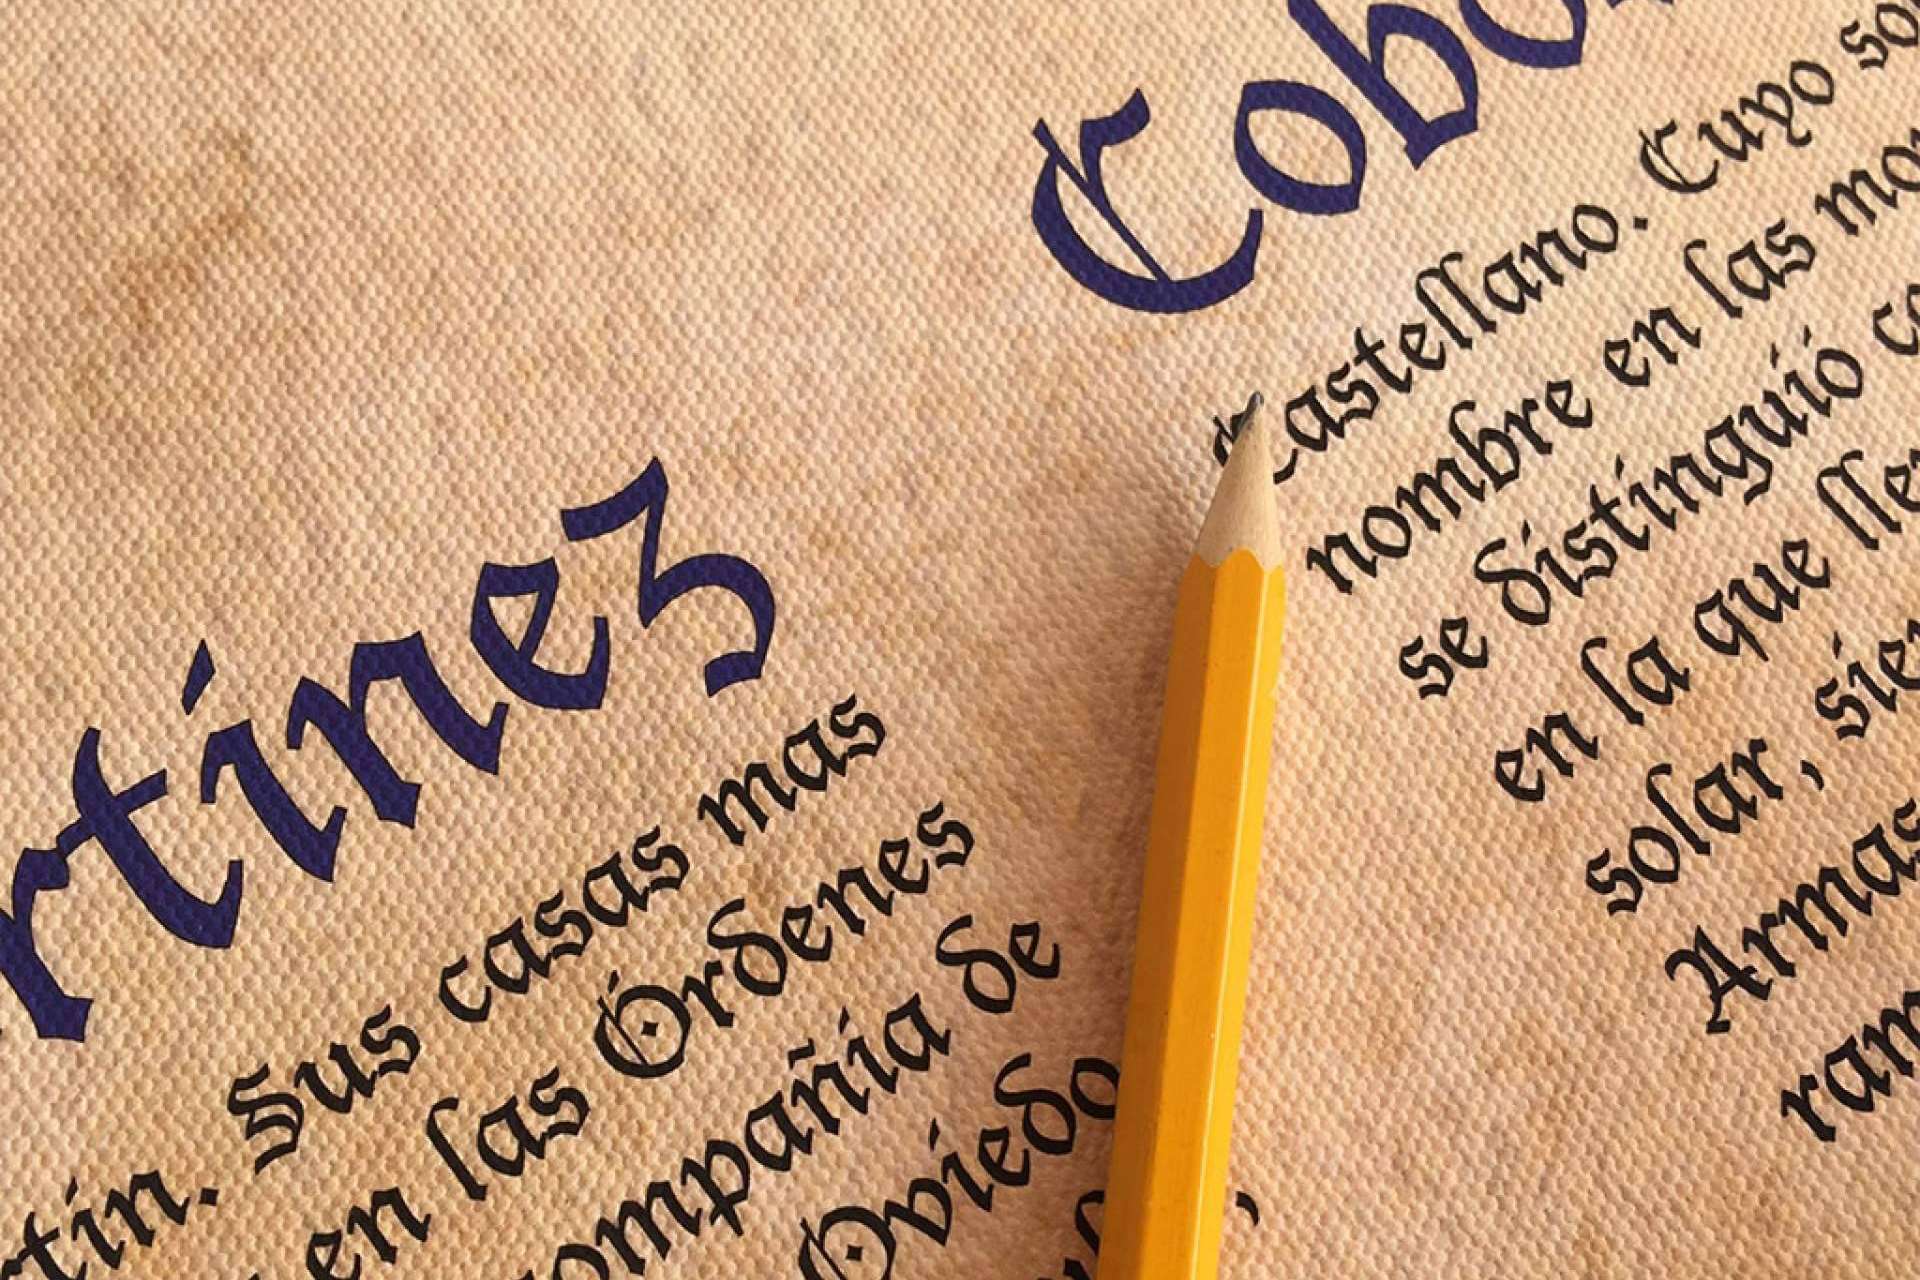 rtínez
rtín. Sus casas mas
en las Órdenes
ompañía de
Oviedo
Cobo
Castellano. Cuyo so
nombre en las mo
se distinguió co
en la que lle
solar, sie
Armas
ram